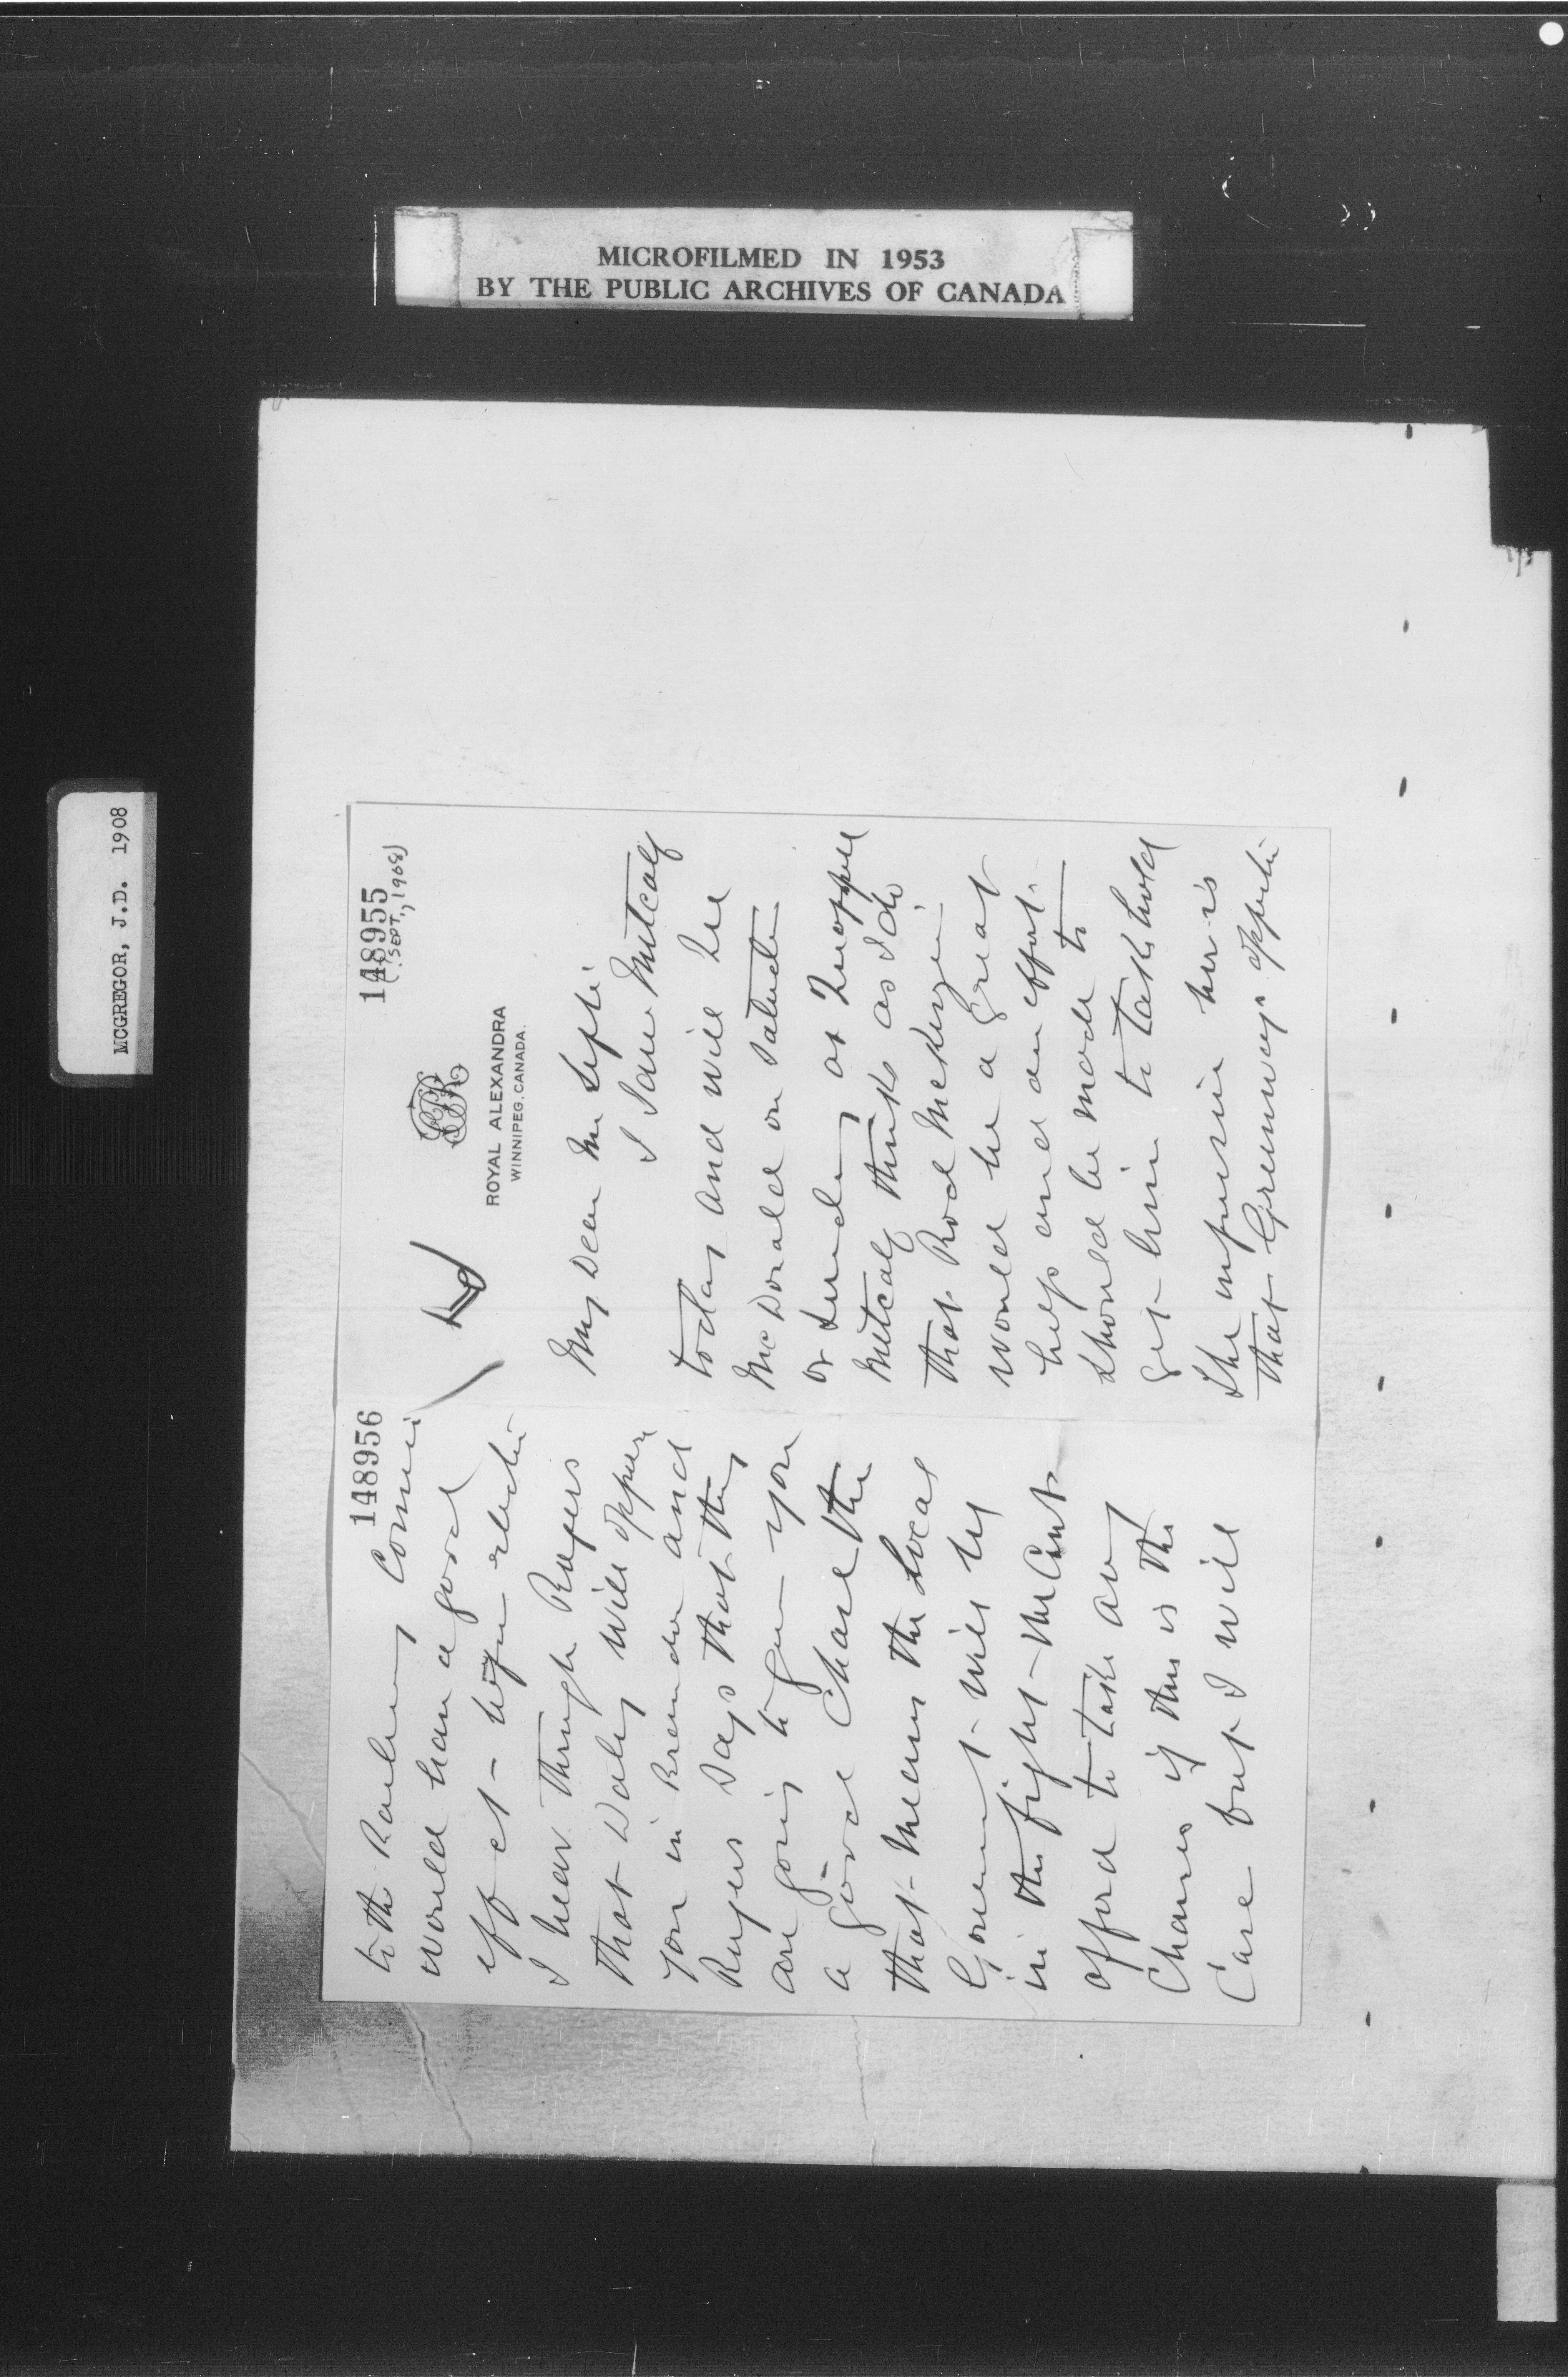 MICROFILMED IN 1953
BY THE PUBLIC ARCHIVES OF CANADA
MCGREGOR, J.D. 1908
148955
(SEPT., 1908)
CPR
ROYAL ALEXANDRA
WINNIPEG, CANADA.
My Dear Mr
I saw Metcalf
today and will see
McDonald on
or Sunday at
Metcalf thinks as I do
that Rod McKenzie
would be a great
help and an effort
should be made to
get him to take hold
The impression here is
that Greenways
148956
to the Railway
would have a good
effect before
I hear through Rogers
that Daly will oppose
you in Brandon and
Rogers says that they
are going to give you
a good chase
that means the Local
Government will be
in the fight We Cant
afford to take any
Chances if this is the
Case but I will